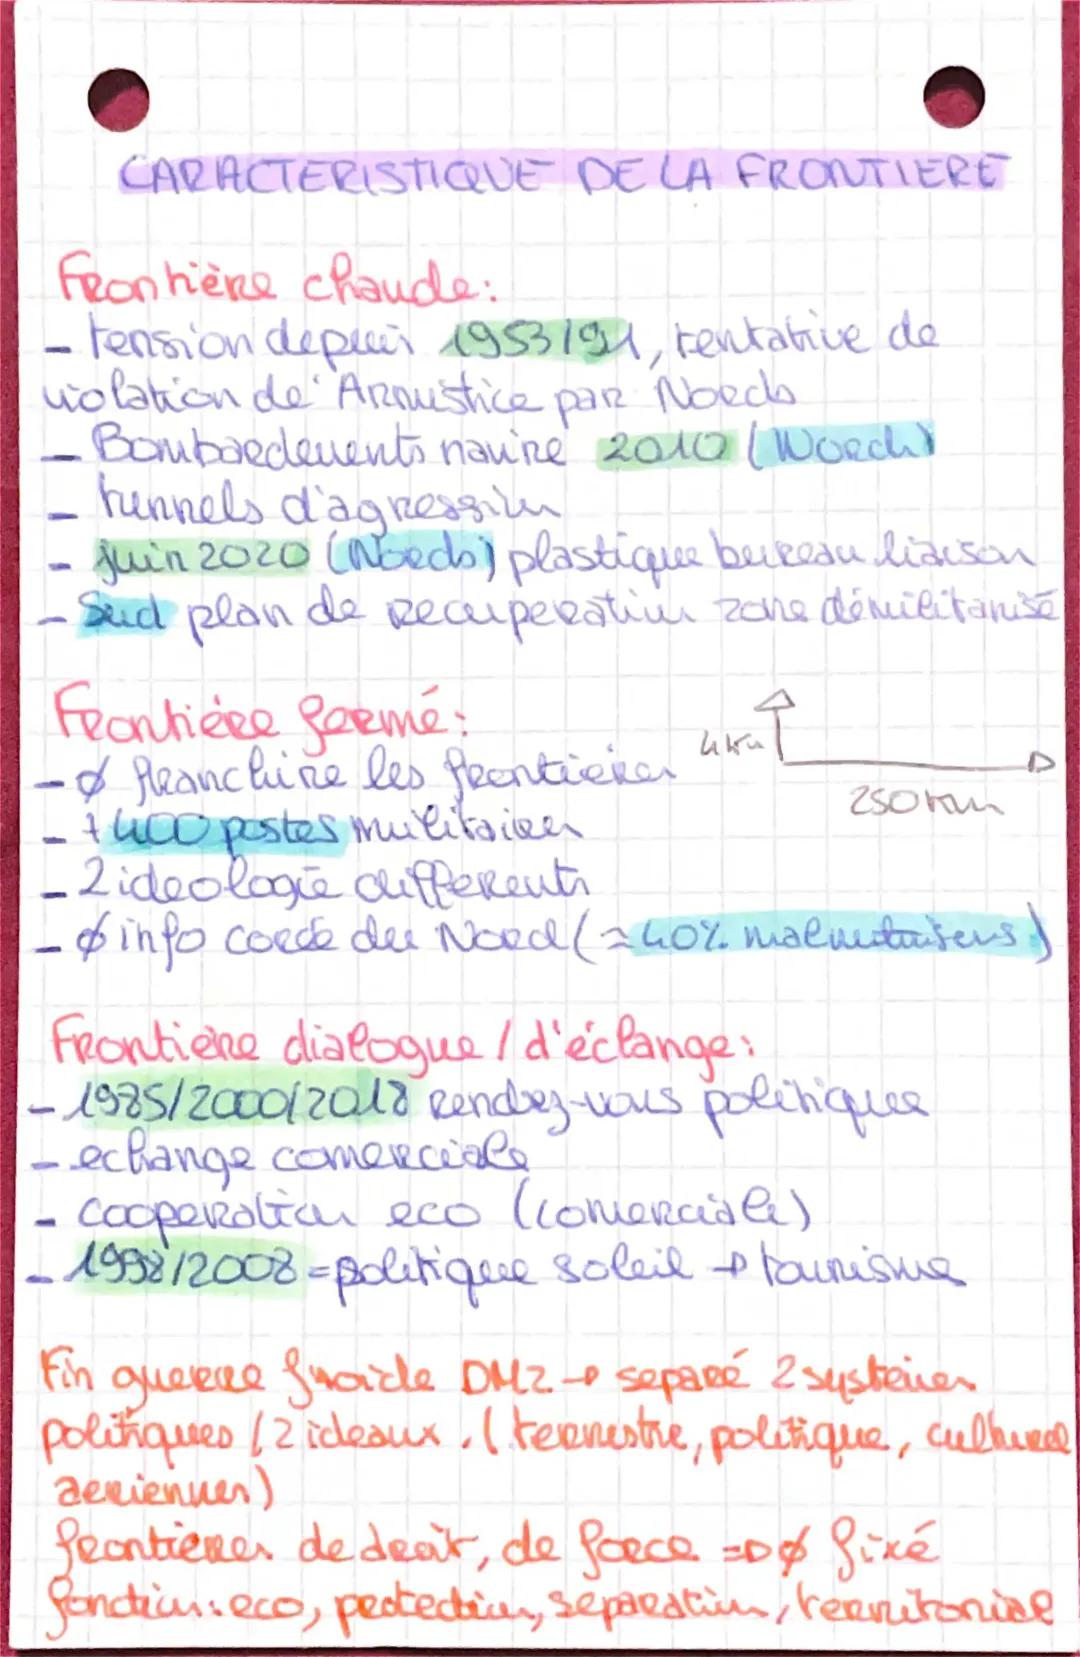 CARACTERISTIQUE DE LA FRONTIERE
Frontière chaude:
- tension depuis 1953/91, tentative de
violation de Armistice par Nords
- Bombardements navire 2010 (Nord)
- tunnels d'agression
- juin 2020 (Nords) plastique bureau liaison
- Sud plan de recuperation zone démilitarisé
Frontière fermé:
4km
- ø franchire les frontières
250 km
- + 400 postes militaires
- 2 ideologie differents
- ø info corée du Nord (≈ 40% malnutrisens)
Frontière dialogue / d'échange:
- 1985/2000/2018 rendez-vous politiques
- echange comerciale
- cooperation eco (comerciale)
- 1998/2008 = politique soleil → tourisme
Fin guerre froide DMZ → separé 2 systèmes
politiques / 2 ideaux. (terrestre, politique, culturel
aeriennes)
frontieres de droit, de force => ø fixé
fonction: eco, protection, séparation, territoriale